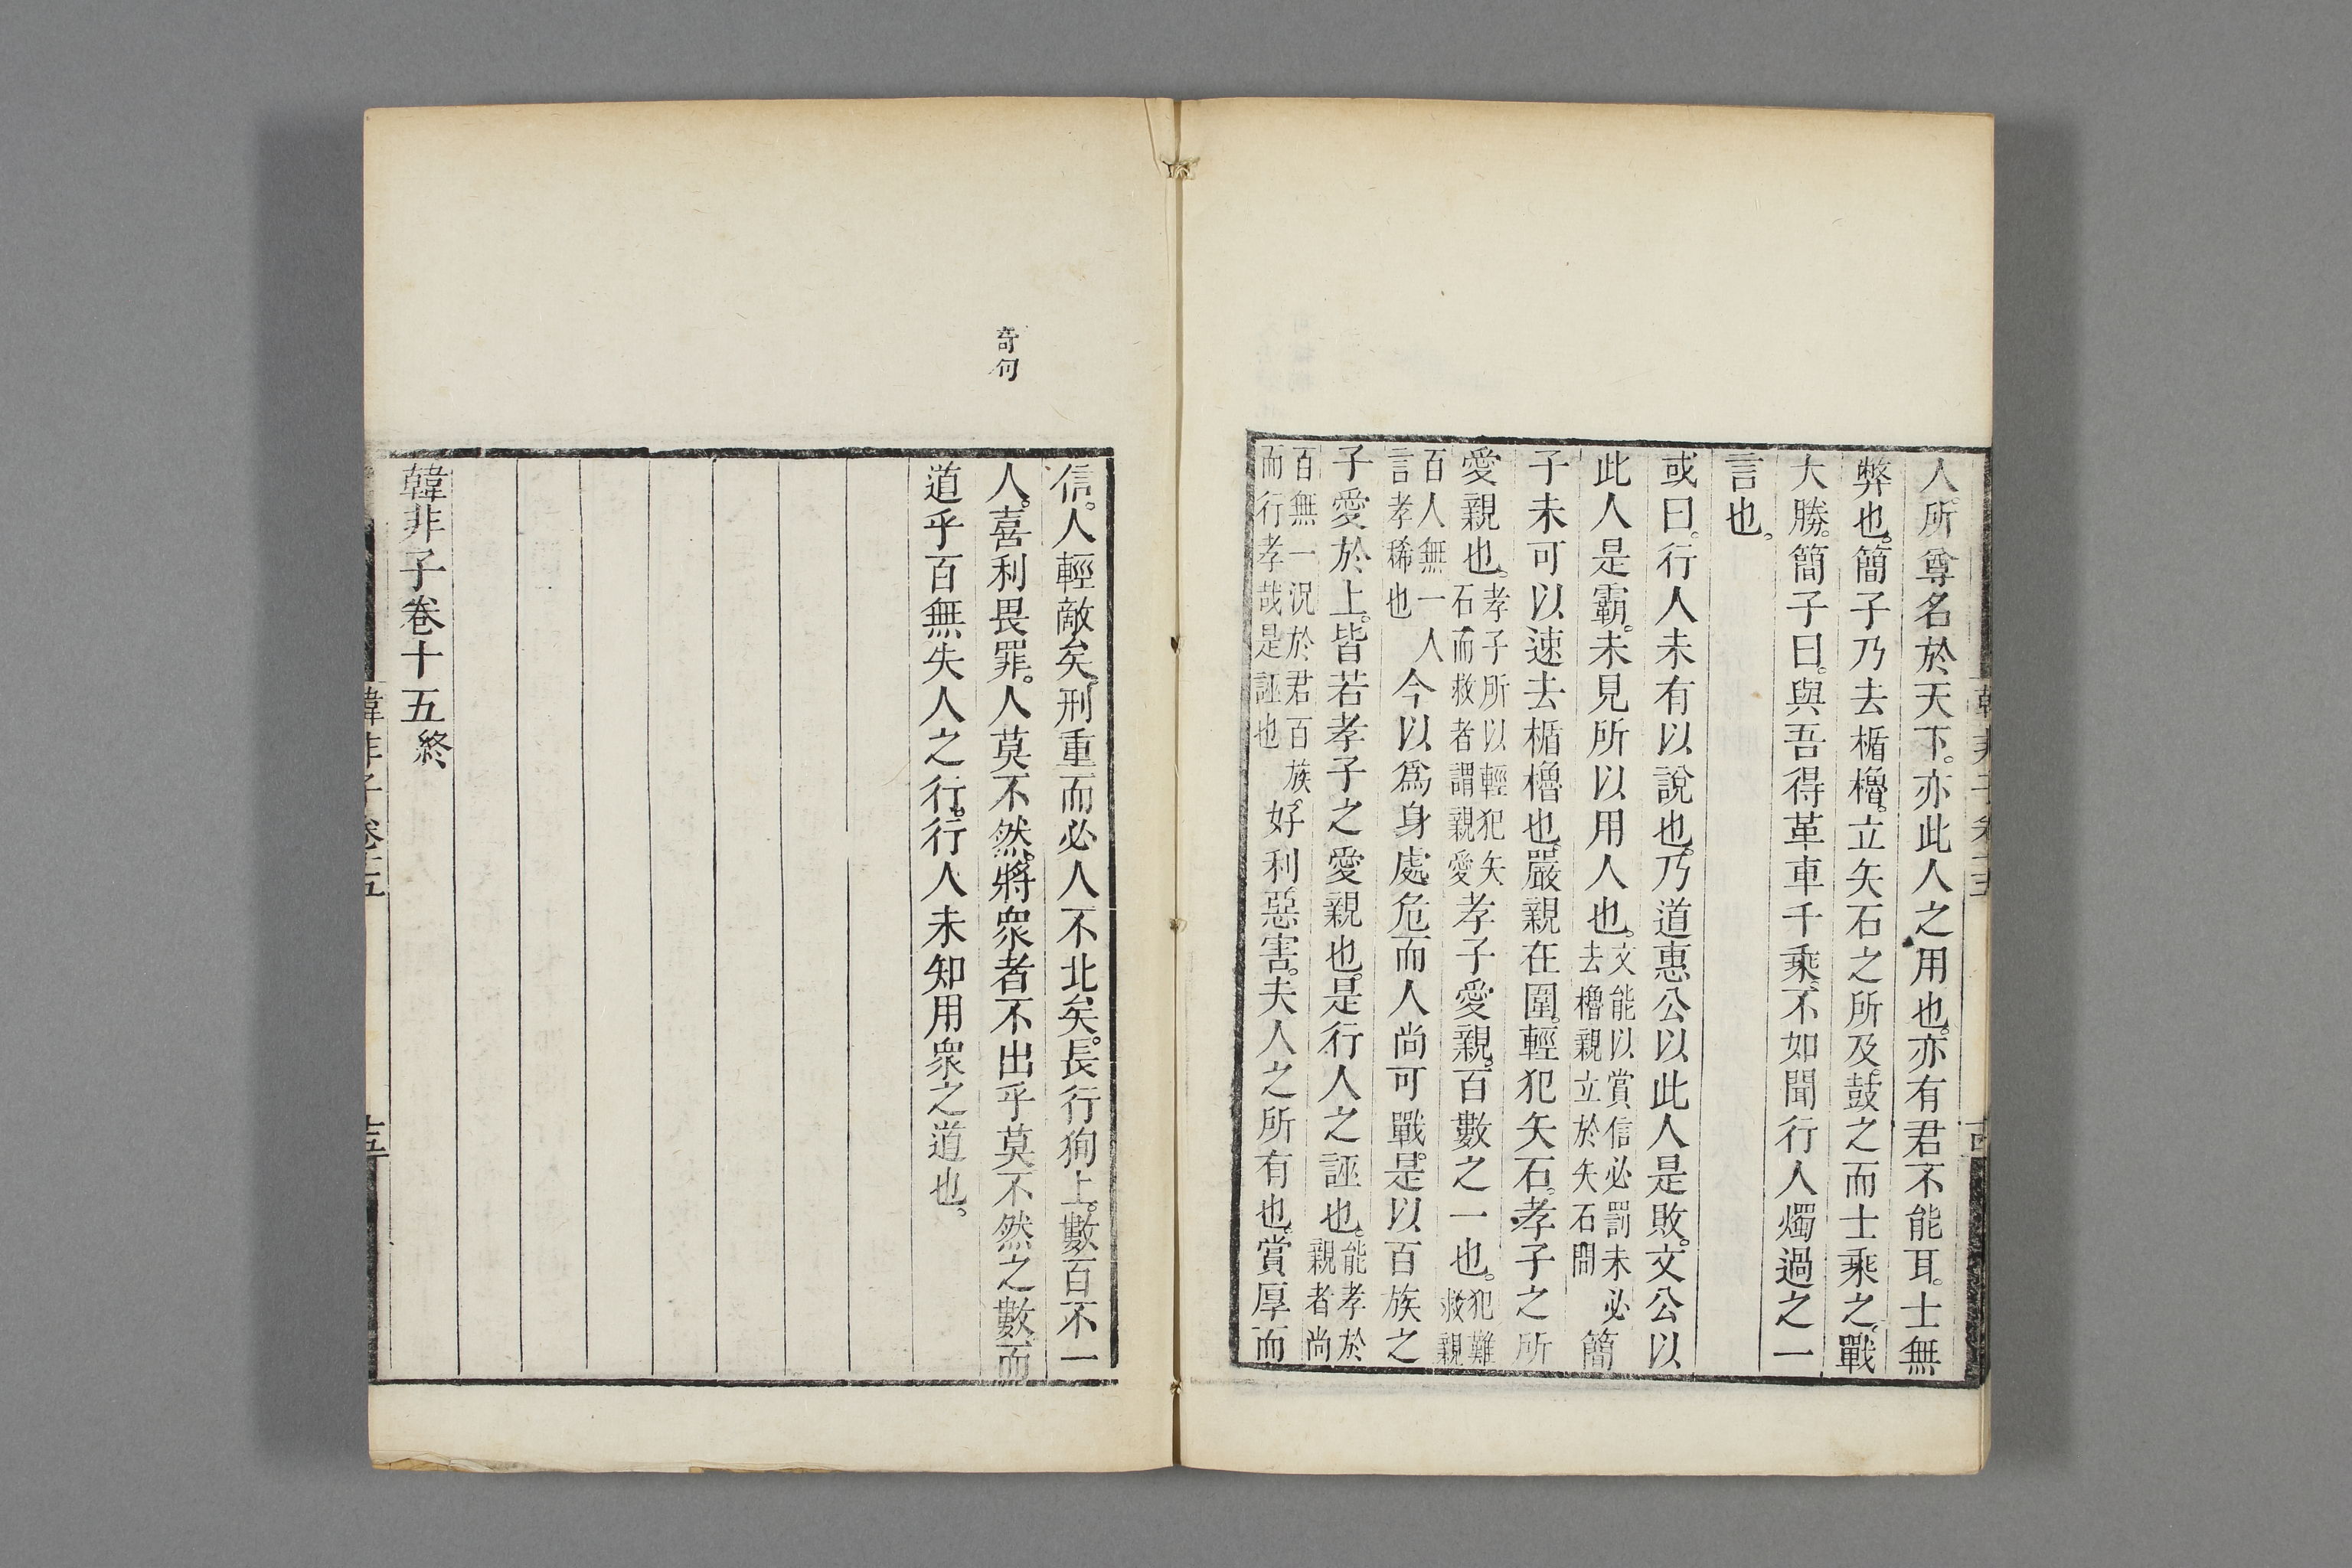 人所尊名於天下。亦此人之用也。亦有君不能耳。士無
弊也。簡子乃去楯櫓。立矢石之所及。鼓之而士乘之。戰
大勝。簡子曰。與吾得革車千乘。不如聞行人燭過之一
言也。
或曰。行人未有以說也。乃道惠公以此人是敗。文公以
此人是霸。未見所以用人也。文能以賞信必罰未必去櫓親立於矢石間簡
子未可以速去楯櫓也。嚴親在圍。輕犯矢石。孝子之所
愛親也。孝子所以輕犯矢石而救者謂親愛孝子愛親。百數之一也。犯難救親
百人無一人言孝稀也今以爲身處危而人尚可戰。是以百族之
子愛於上。皆若孝子之愛親也。是行人之誣也。能孝於親者尚
百無一況於君百族而行孝哉是誣也好利惡害。夫人之所有也。賞厚而
奇句
信。人輕敵矣。刑重而必人不北矣。長行狥上。數百不一
人。喜利畏罪。人莫不然。將衆者不出乎莫不然之數而
道乎百無失人之行。行人未知用衆之道也。
韓非子卷十五終
韓非子卷十五